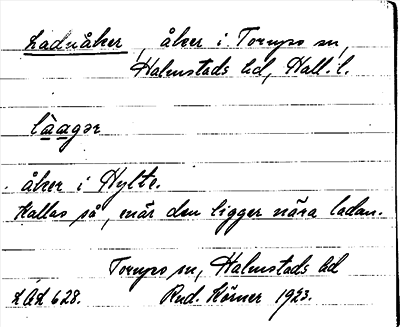 Ladnåker, åker i Torups sn,
Halmstads hd, Hall. l.
làagər
åker i Hylte.
Kallas så, enär den ligger nära ladan.
Torups sn, Halmstads hd
LAL 628. Rud. Hörner 1923.